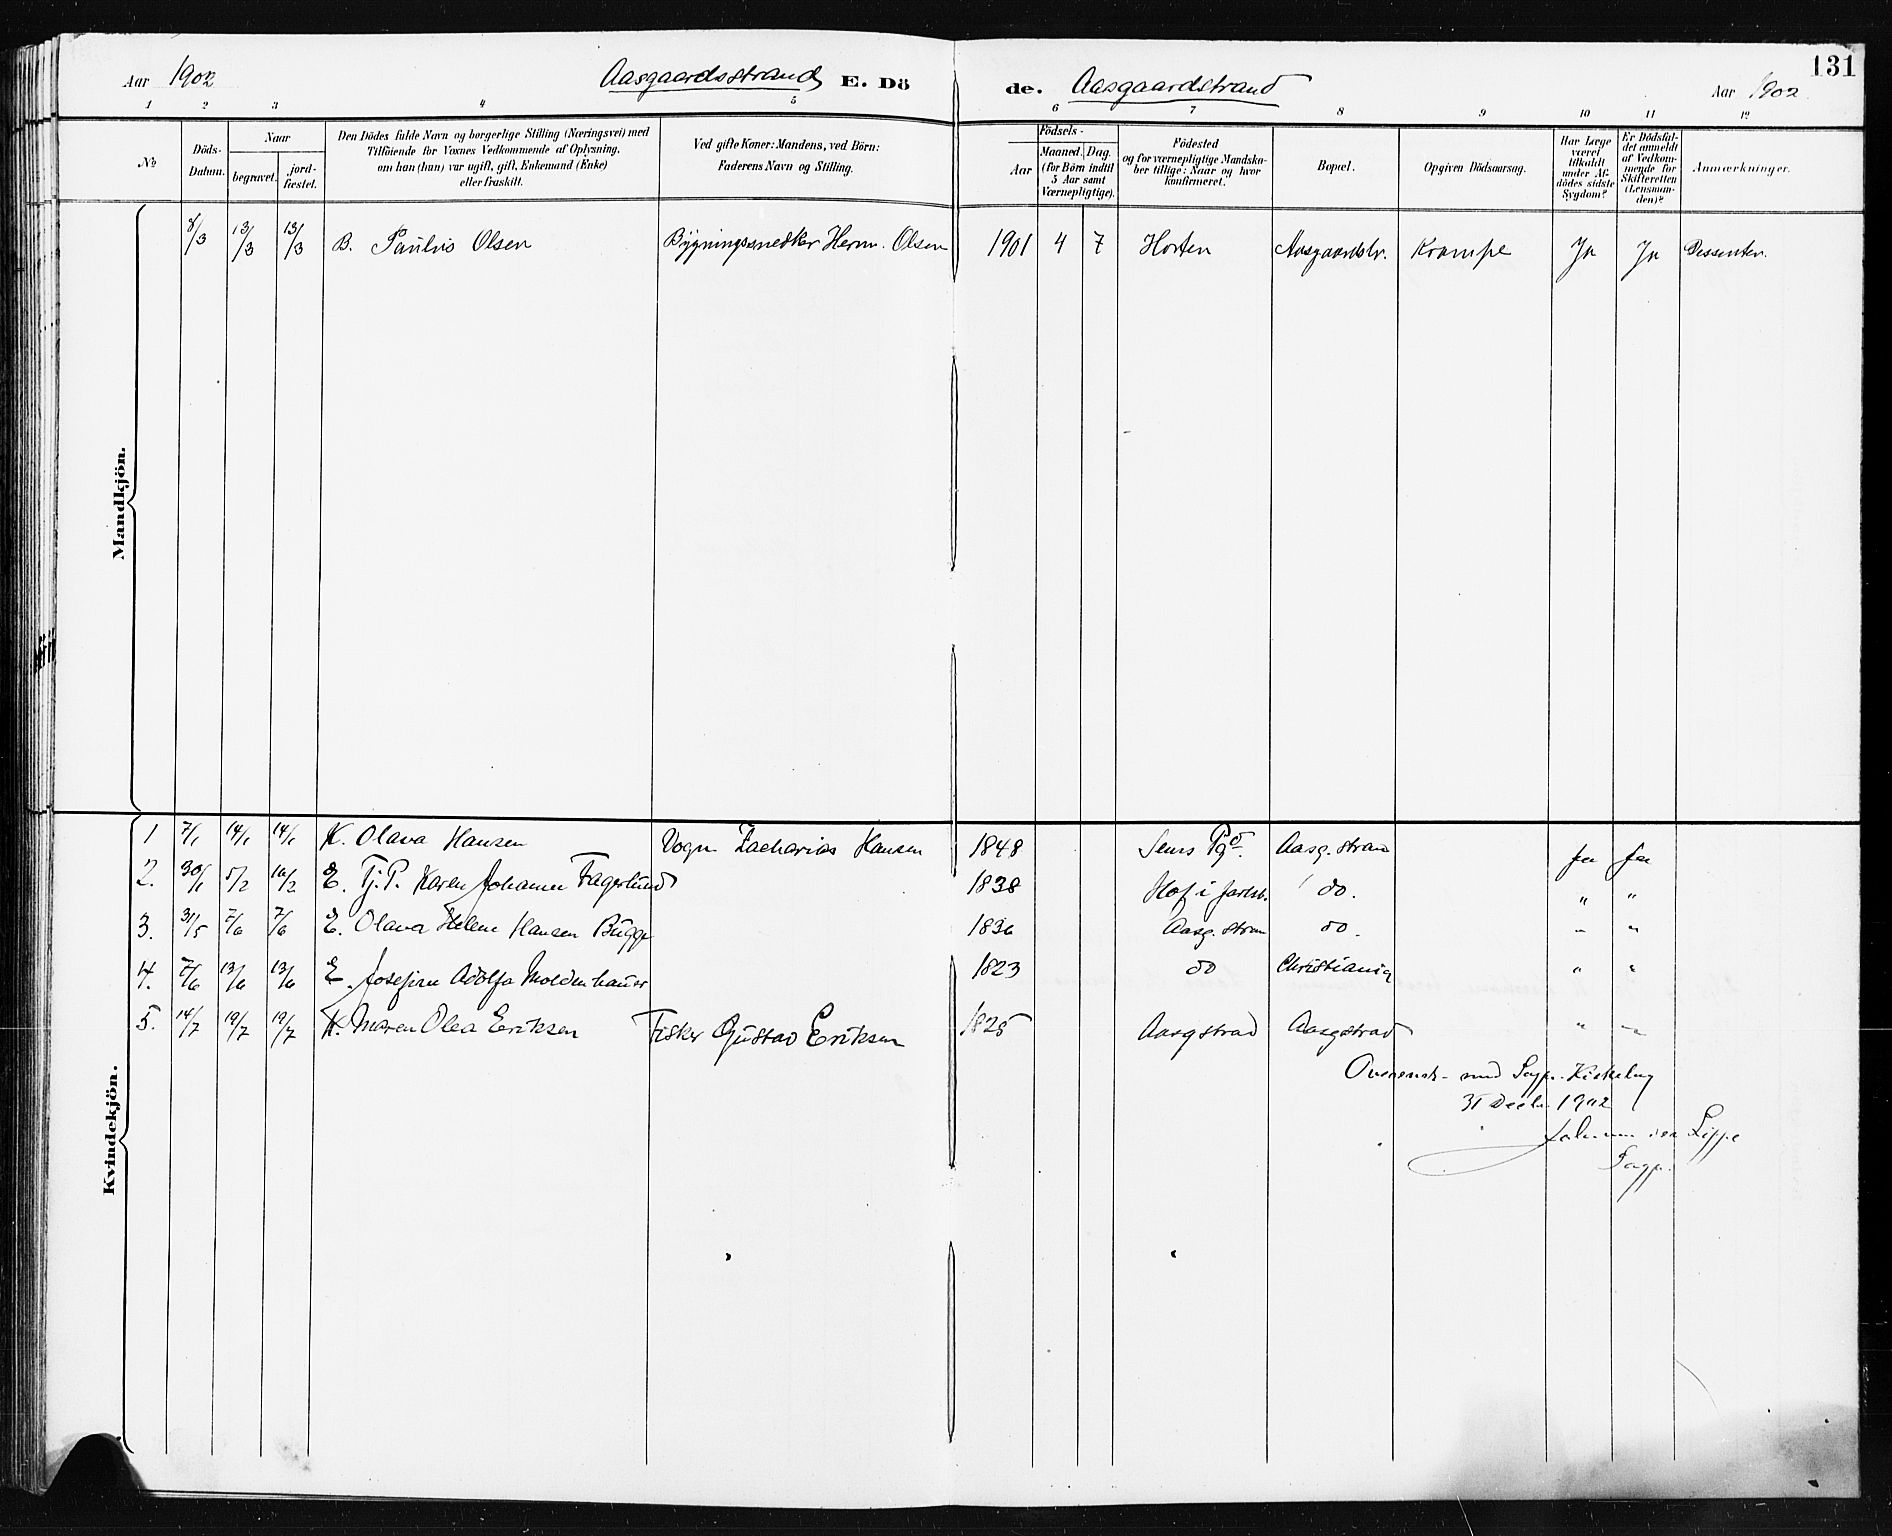 131
Aar 1902 Aasgaardsstrand E. Dö de. Aasgaardstrand Aar 1902
1 2 3 4 5 6 7 8 9 10 11 12
No
Döds-
Datum.
Naar
begravet.
jord-
fæstet.
Den Dödes fulde Navn og borgerlige Stilling (Næringsvei) med
Tilföiende for Voxnes Vedkommende af Oplysning,
om han (hun) var ugift, gift, Enkemand (Enke)
eller fraskilt.
Ved gifte Koner: Mandens, ved Börn:
Faderens Navn og Stilling.
Födsels-
Aar
Maaned. Dag.
(for Börn indtil
5 Aar samt
Værnepligtige).
Födested
og for værnepligtige Mandska-
ber tillige: Naar og hvor
konfirmeret.
Bopæl.
Opgiven Dödsaarsag.
Har Læge
været
tilkaldt
under Af-
dödes sidste
Sygdom?
Er Dödsfal-
det anmeldt
af Vedkom-
mende for
Skifteretten
(Lensman-
den)?
Anmærkninger.
Mandkjön.
8/3 13/3 13/3 B. Paulus Olsen Bygningssnedker Herm. Olsen 1901 4 7 Horten Aasgaardstr. Krampe Ja Ja Dissenter.
Kvindekjön.
1 7/1 14/1 14/1 K. Olava Hansen Vogn Zacharias Hansen 1848 Sems Pgd. Aasg. stran Ja Ja
2. 30/1 5/2 10/2 E. Fj. P. Karen Johanne Fagerlund 1838 Hof i Jarlsb. do. " "
3. 31/5 7/6 7/6 E. Olava Helene Hansen Bugge 1836 Aasg. stran do. " "
4. 7/6 13/6 13/6 E. Josefine Adolfa Moldenhauer 1823 do Christiania " "
5. 14/7 19/7 19/7 K. Maren Olea Eriksen Fisker Gustav Eriksen 1825 Aasgstrad Aasgstrad " "
Overensst. med Sogp. Kirkebog
31 Decbr. 1902
von der Lippe
Sogp.